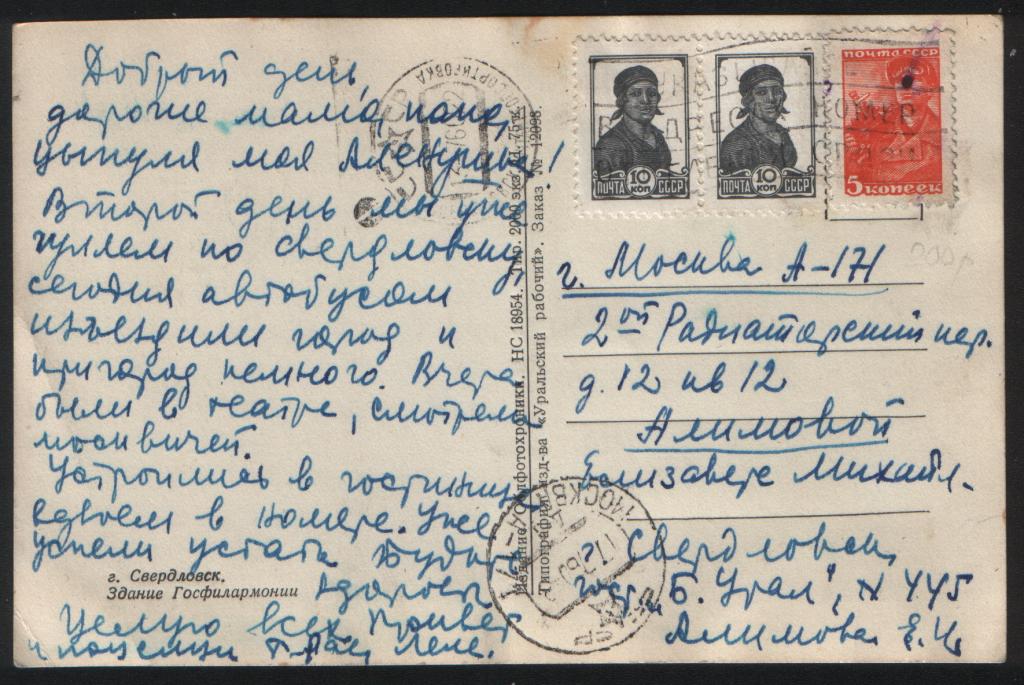 Добрый день
дорогие мама, папа,
цыпуля моя Аленушка!
Второй день мы уже
гуляем по Свердловску,
сегодня автобусом
изъездили город и
пригород немного. Вчера
были в театре, смотрели
москвичей.
Устроились в гостинице
вдвоем в номере. Уже
успели устать. Будьте
здоровы
Целую всех Привет
и поцелуи Леле.
г. Свердловск.
Здание Госфилармонии
Издание Фотохроники. НС 18954. Тир. 2000 экз. Ц. 75 к.
Типография изд-ва «Уральский рабочий». Заказ № 12098.
10 КОП
ПОЧТА СССР
10 КОП
ПОЧТА СССР
ПОЧТА СССР
5 КОПЕЕК
г. Москва А-171
2ой Радиаторский пер.
д. 12 кв 12
Алимовой
Елизавете Михайл.
Свердловск,
гост. „Б. Урал", N 445
Алимова Е. И.
МОСКВА
СССР